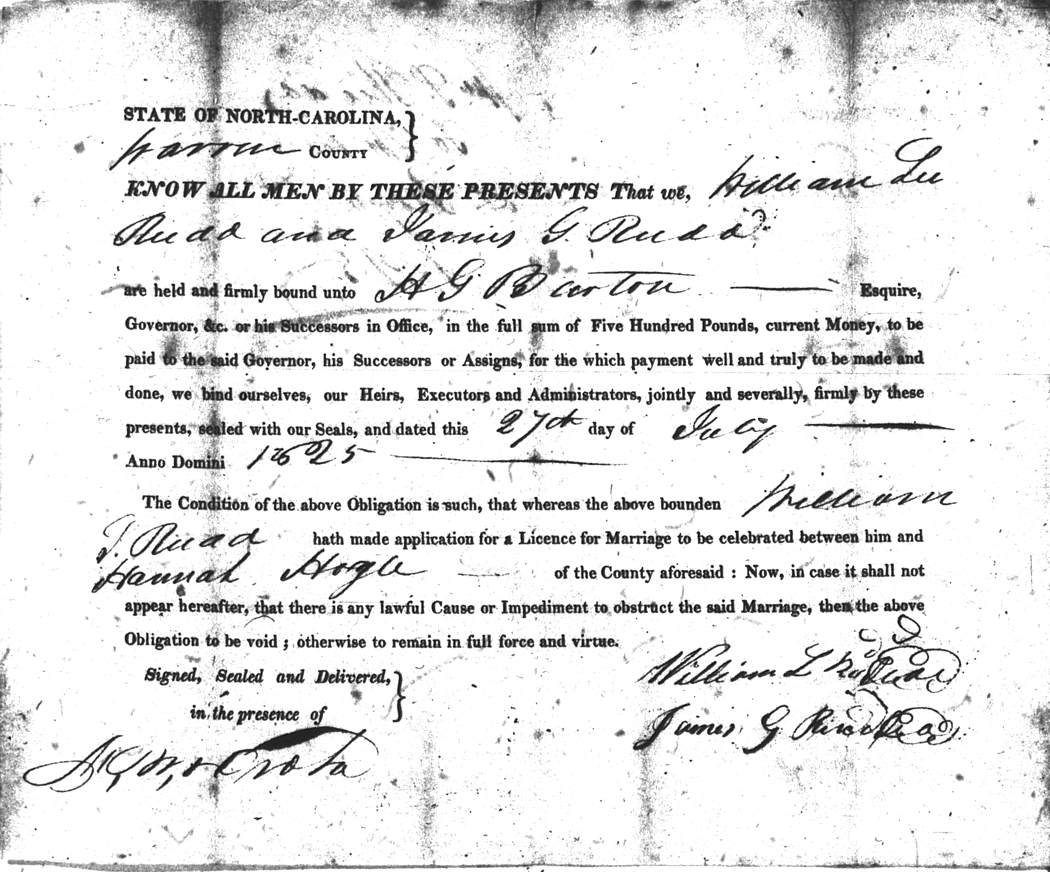 STATE OF NORTH-CAROLINA,
Warren COUNTY
KNOW ALL MEN BY THESE PRESENTS That we, William Lee
Rudd and James G. Rudd
are held and firmly bound unto H G Burton Esquire,
Governor, &c. or his Successors in Office, in the full sum of Five Hundred Pounds, current Money, to be
paid to the said Governor, his Successors or Assigns, for the which payment well and truly to be made and
done, we bind ourselves, our Heirs, Executors and Administrators, jointly and severally, firmly by these
presents, sealed with our Seals, and dated this 27th day of July
Anno Domini 1825
The Condition of the above Obligation is such, that whereas the above bounden William
L. Rudd hath made application for a Licence for Marriage to be celebrated between him and
Hannah Hogle of the County aforesaid : Now, in case it shall not
appear hereafter, that there is any lawful Cause or Impediment to obstruct the said Marriage, then the above
Obligation to be void ; otherwise to remain in full force and virtue.
Signed, Sealed and Delivered,
in the presence of
William L Rudd
James G Rudd